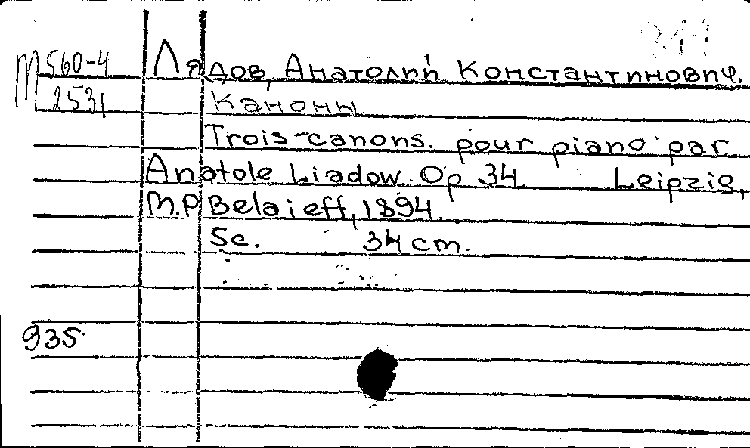 М 560-4
2531
Лядов, Анатолий Константинович.
Каноны
Trois canons. pour piano par
Anatole Liadow. Op 34. Leipzig,
M.P. Belaieff, 1894.
5с. 34 cm.
935